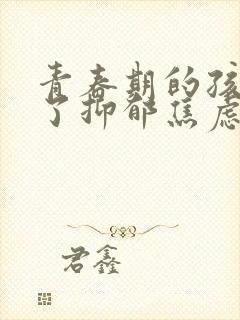 青春期的孩
了抑郁焦虑
君鑫